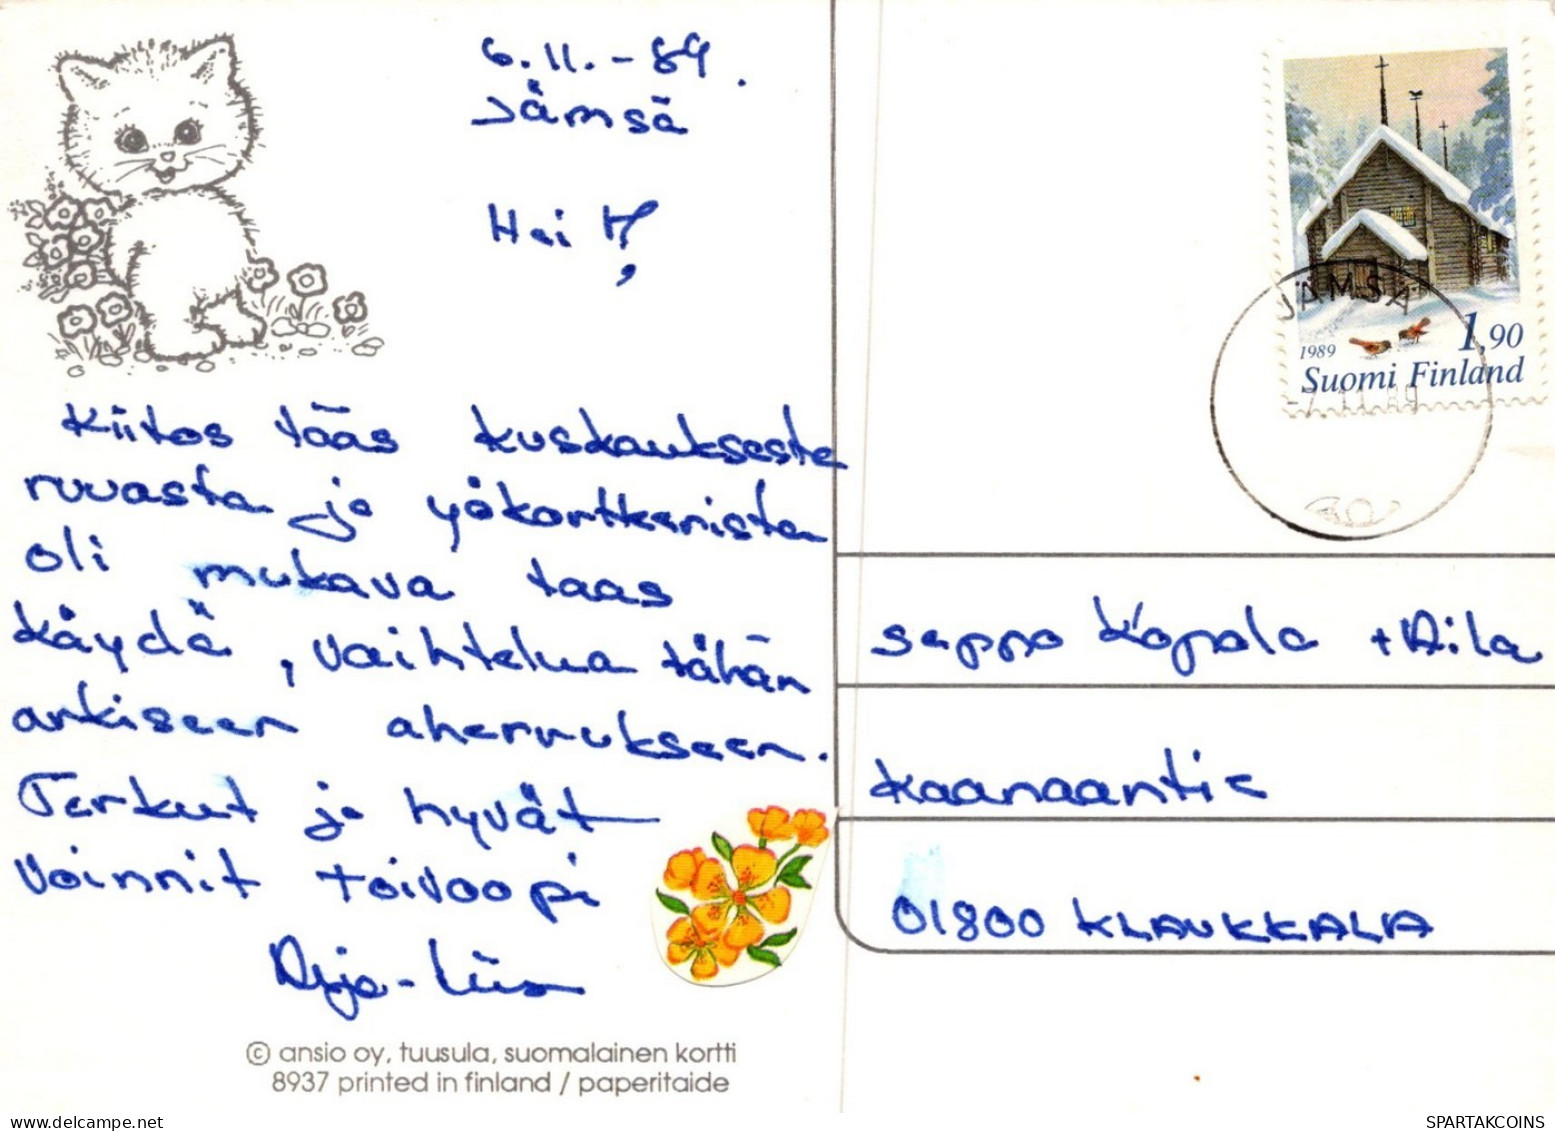 6.11.-89.
Jämsä
Hei
Kiitos tääs kuskauksesta
ruuasta ja yökortteerista
oli mukava taas
käydä, vaihtelua tähän
arkiseen aherrukseen.
Terkut ja hyvät
voinnit toivoopi
Arja-Liisa
© ansio oy, tuusula, suomalainen kortti
8937 printed in finland / paperitaide
JÄMSÄ
1989
1,90
Suomi Finland
-7.11.89
Seppo Kopala + Aila
Kaanaantie
01800 KLAUKKALA
SPARTAKCOINS